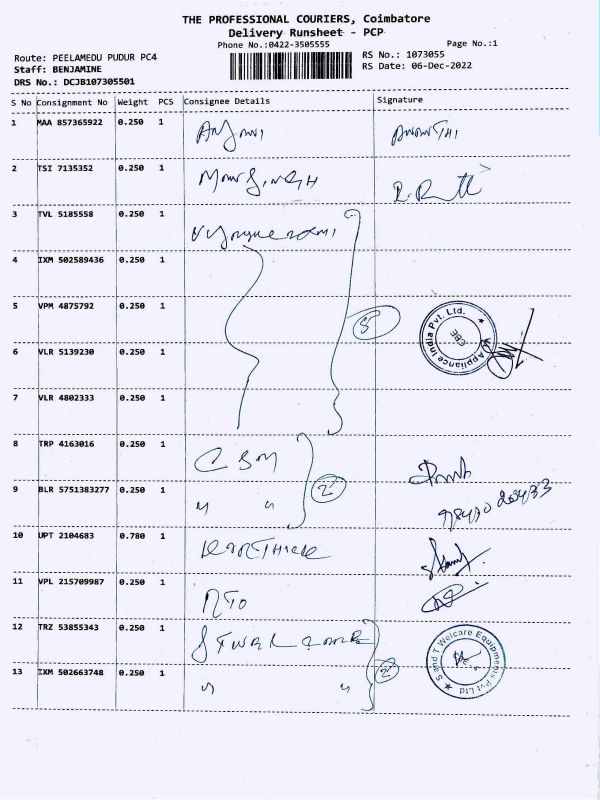 THE PROFESSIONAL COURIERS, Coimbatore
Delivery Runsheet - PCP
Phone No.:0422-3505555
Page No.:1
Route: PEELAMEDU PUDUR PC4
RS No.: 1073055
Staff: BENJAMINE
RS Date: 06-Dec-2022
DRS No.: DCJB107305501
S No Consignment No Weight PCS Consignee Details Signature
1 MAA 857365922 0.250 1
2 TSI 7135352 0.250 1
3 TVL 5185558 0.250 1
4 IXM 502589436 0.250 1
5 VPM 4875792 0.250 1
5
Appliance India Pvt. Ltd.
CBE
6 VLR 5139230 0.250 1
7 VLR 4802333 0.250 1
8 TRP 4163016 0.250 1 CSM
9 BLR 5751383277 0.250 1 " "
2
10 UPT 2104683 0.780 1 KARTHICK
11 VPL 215709987 0.250 1 RTO
12 TRZ 53855343 0.250 1 S T WELCARE
S and T Welcare Equipments Pvt Ltd
13 IXM 502663748 0.250 1 " "
2